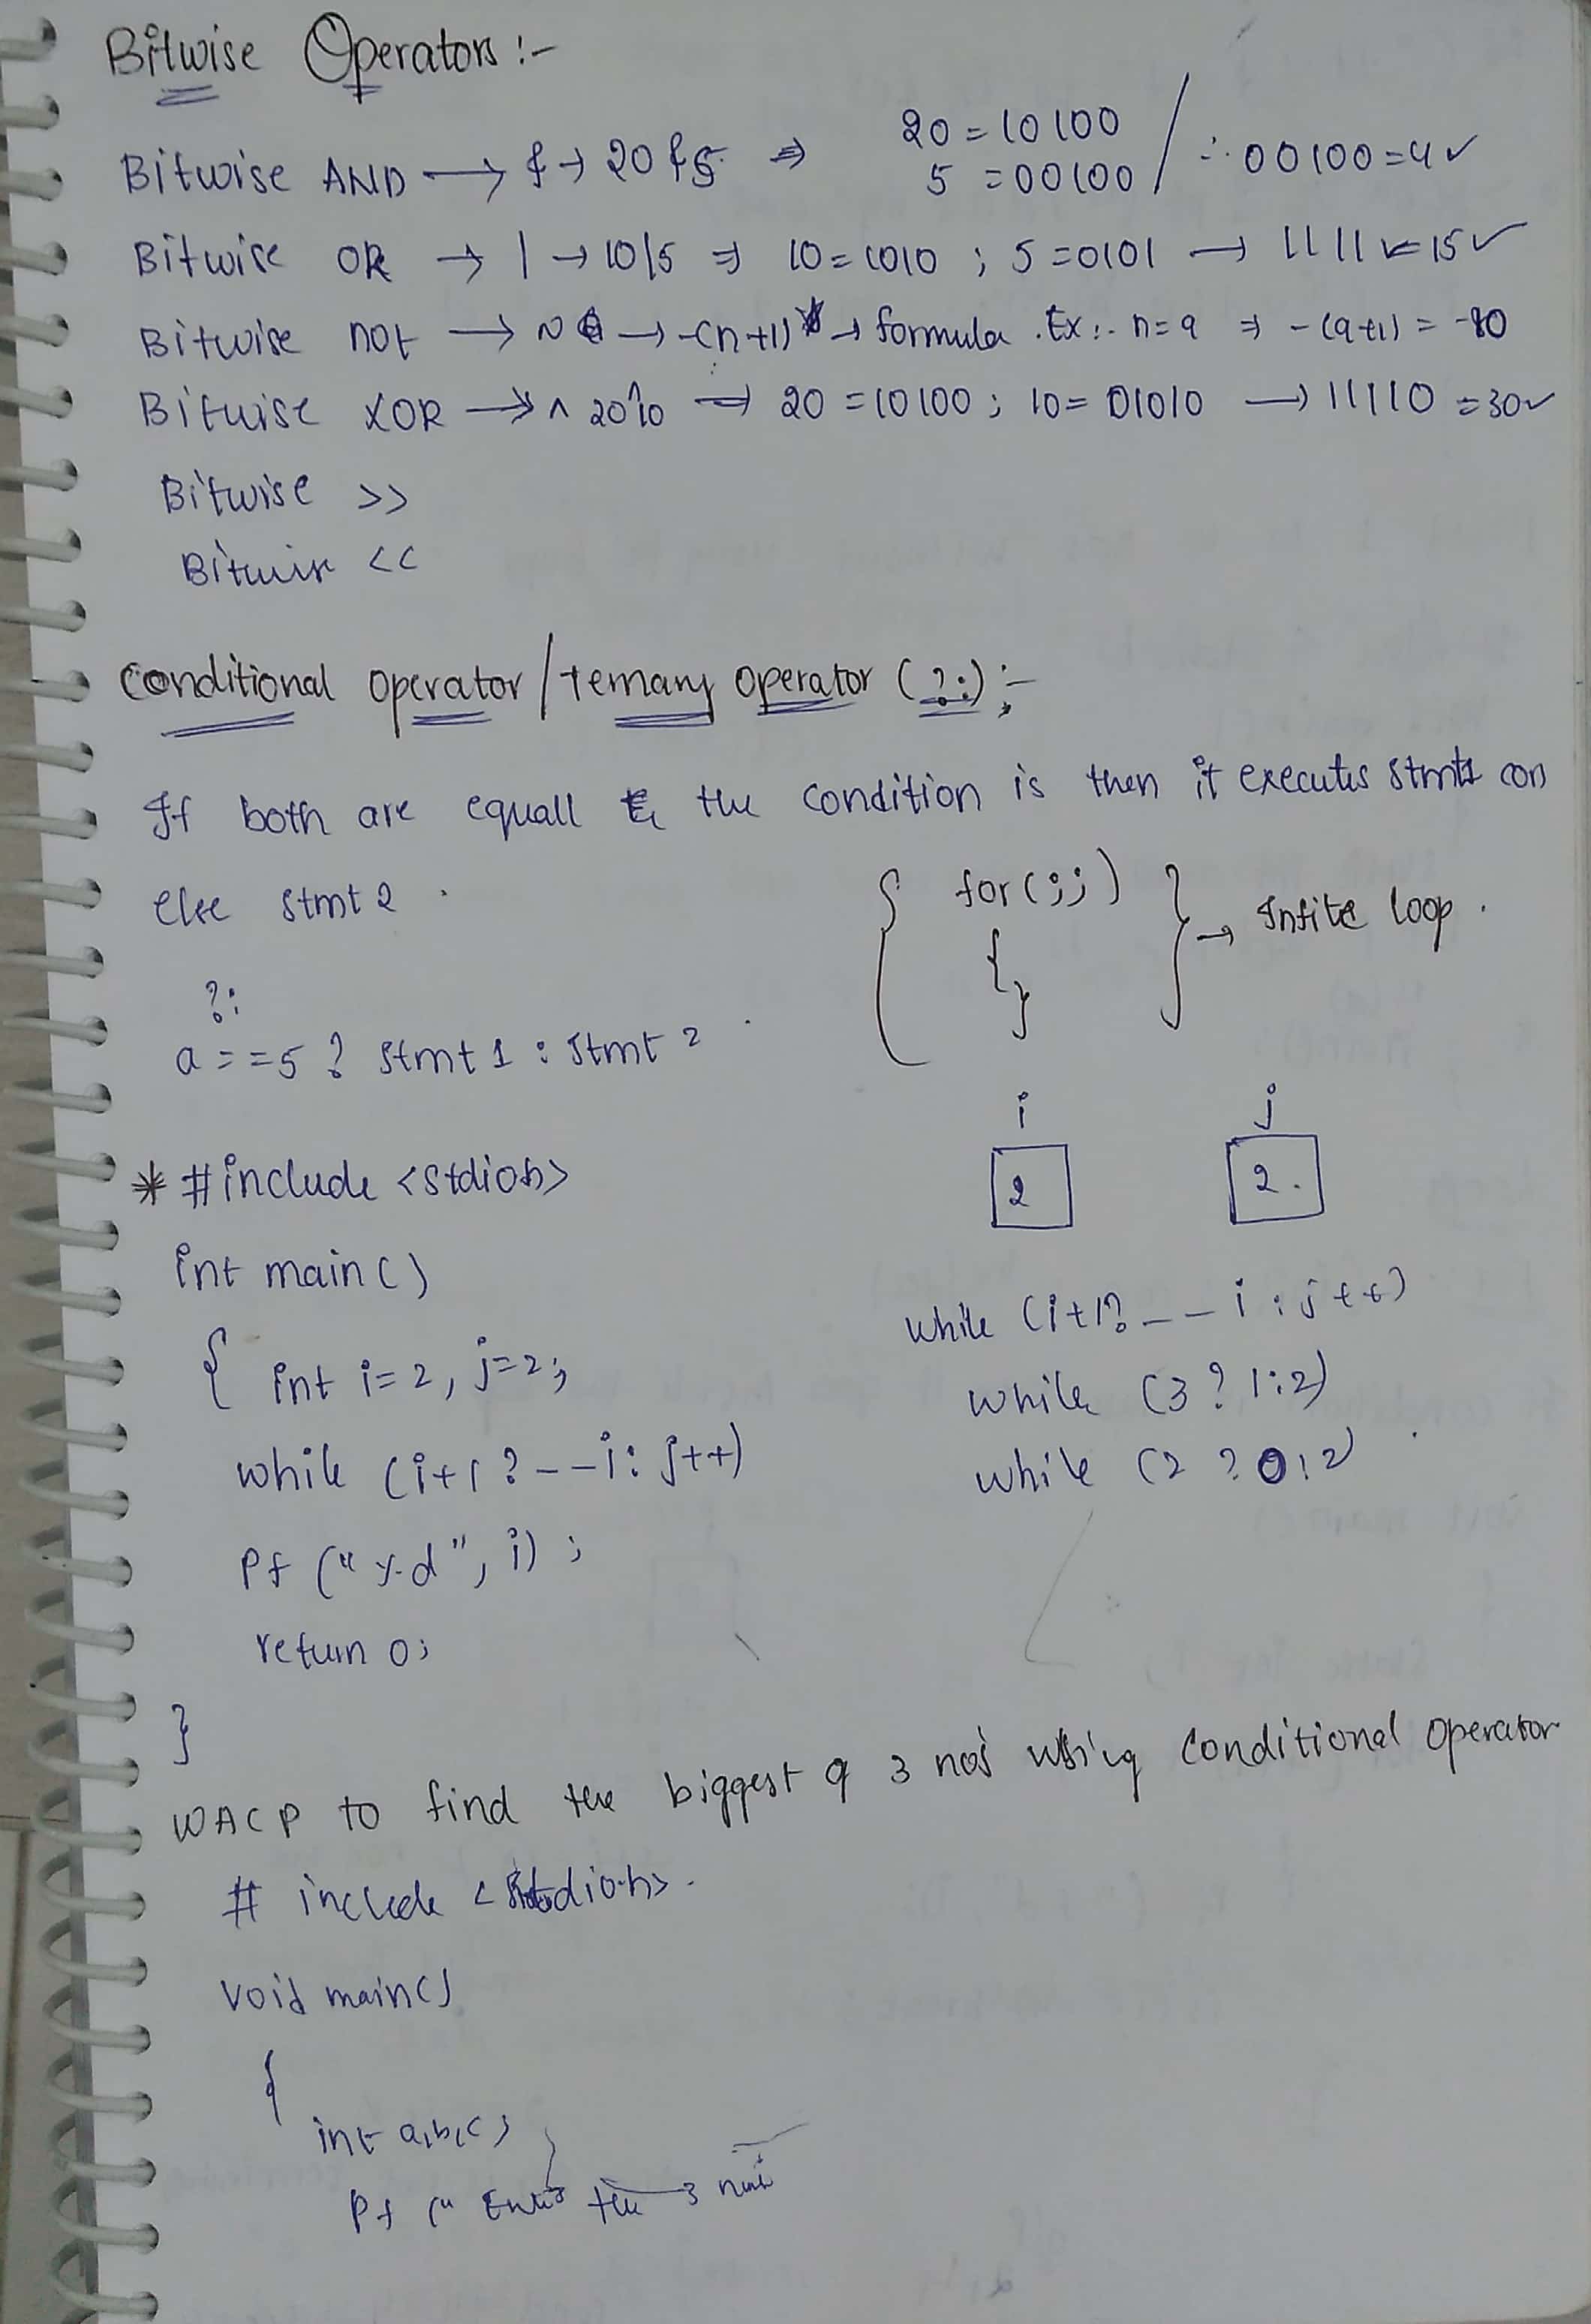 Bitwise Operators :-
Bitwise AND → & → 20 & 5 ⇒ 20 = 10100 / ∴ 00100 = 4 ✓
5 = 00100
Bitwise OR → | → 10|5 ⇒ 10 = 1010 ; 5 = 0101 → 1111 = 15 ✓
Bitwise not → ~ → -(n+1) → formula . Ex :- n=9 ⇒ -(9+1) = -10
Bitwise XOR → ^ 20^10 ⇒ 20 = 10100 ; 10 = 01010 → 11110 = 30 ✓
Bitwise >>
Bitwise <<
Conditional operator / ternary operator (?:) :-
If both are equall & the condition is then it executes stmt1 con
else stmt 2 .
{ for(;;) } → Infite loop .
{
}
?:
a==5 ? stmt 1 : stmt 2
i j
2 2.
* #include <stdioh>
int main()
{ int i=2, j=2;
while (i+1 ? --i : j++)
Pf ("%d", i) ;
return 0;
}
while (i+1? --i : j++)
while (3 ? 1:2)
while (2 ? 0:2)
WACP to find the biggest of 3 nos using conditional operator
# include <stdio.h>.
void main()
{
int a,b,c;
Pf (" Enter the 3